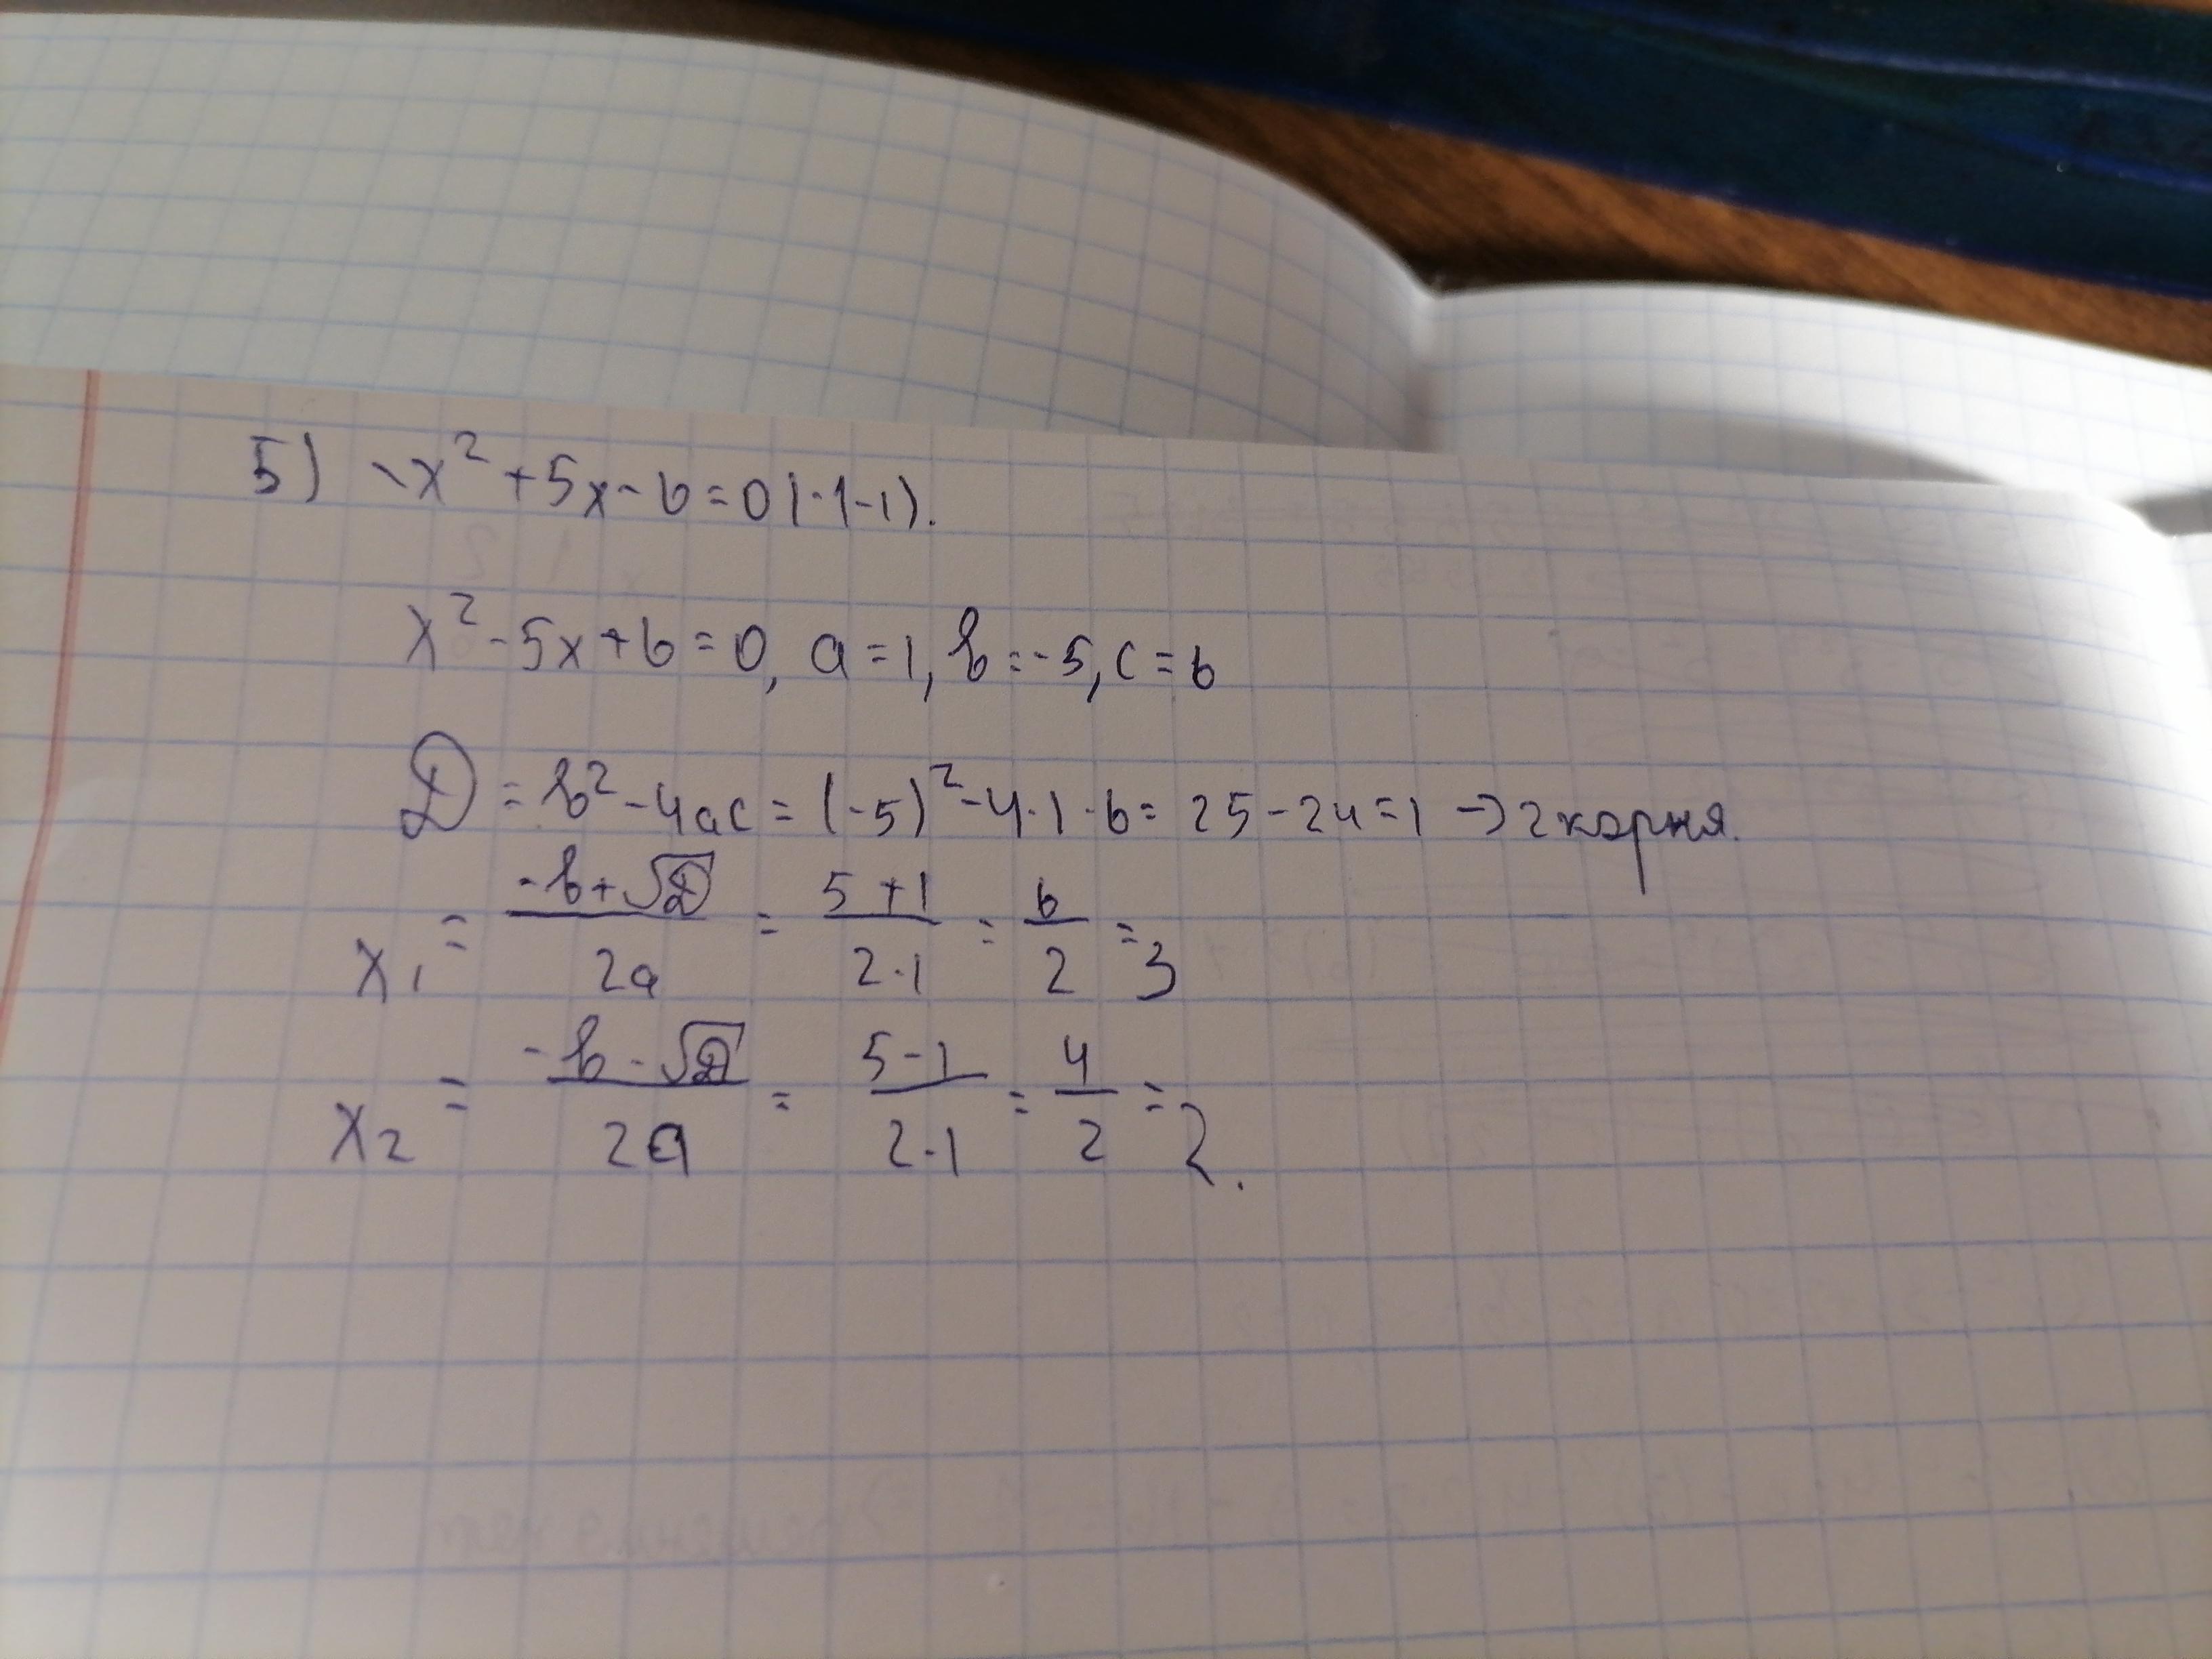 5) -x² + 5x - 6 = 0 | · (-1).
x² - 5x + 6 = 0, a = 1, b = -5, c = 6
D = b² - 4ac = (-5)² - 4 · 1 · 6 = 25 - 24 = 1 → 2 корня.
x₁ = (-b + √D)/(2a) = (5 + 1)/(2 · 1) = 6/2 = 3
x₂ = (-b - √D)/(2a) = (5 - 1)/(2 · 1) = 4/2 = 2.